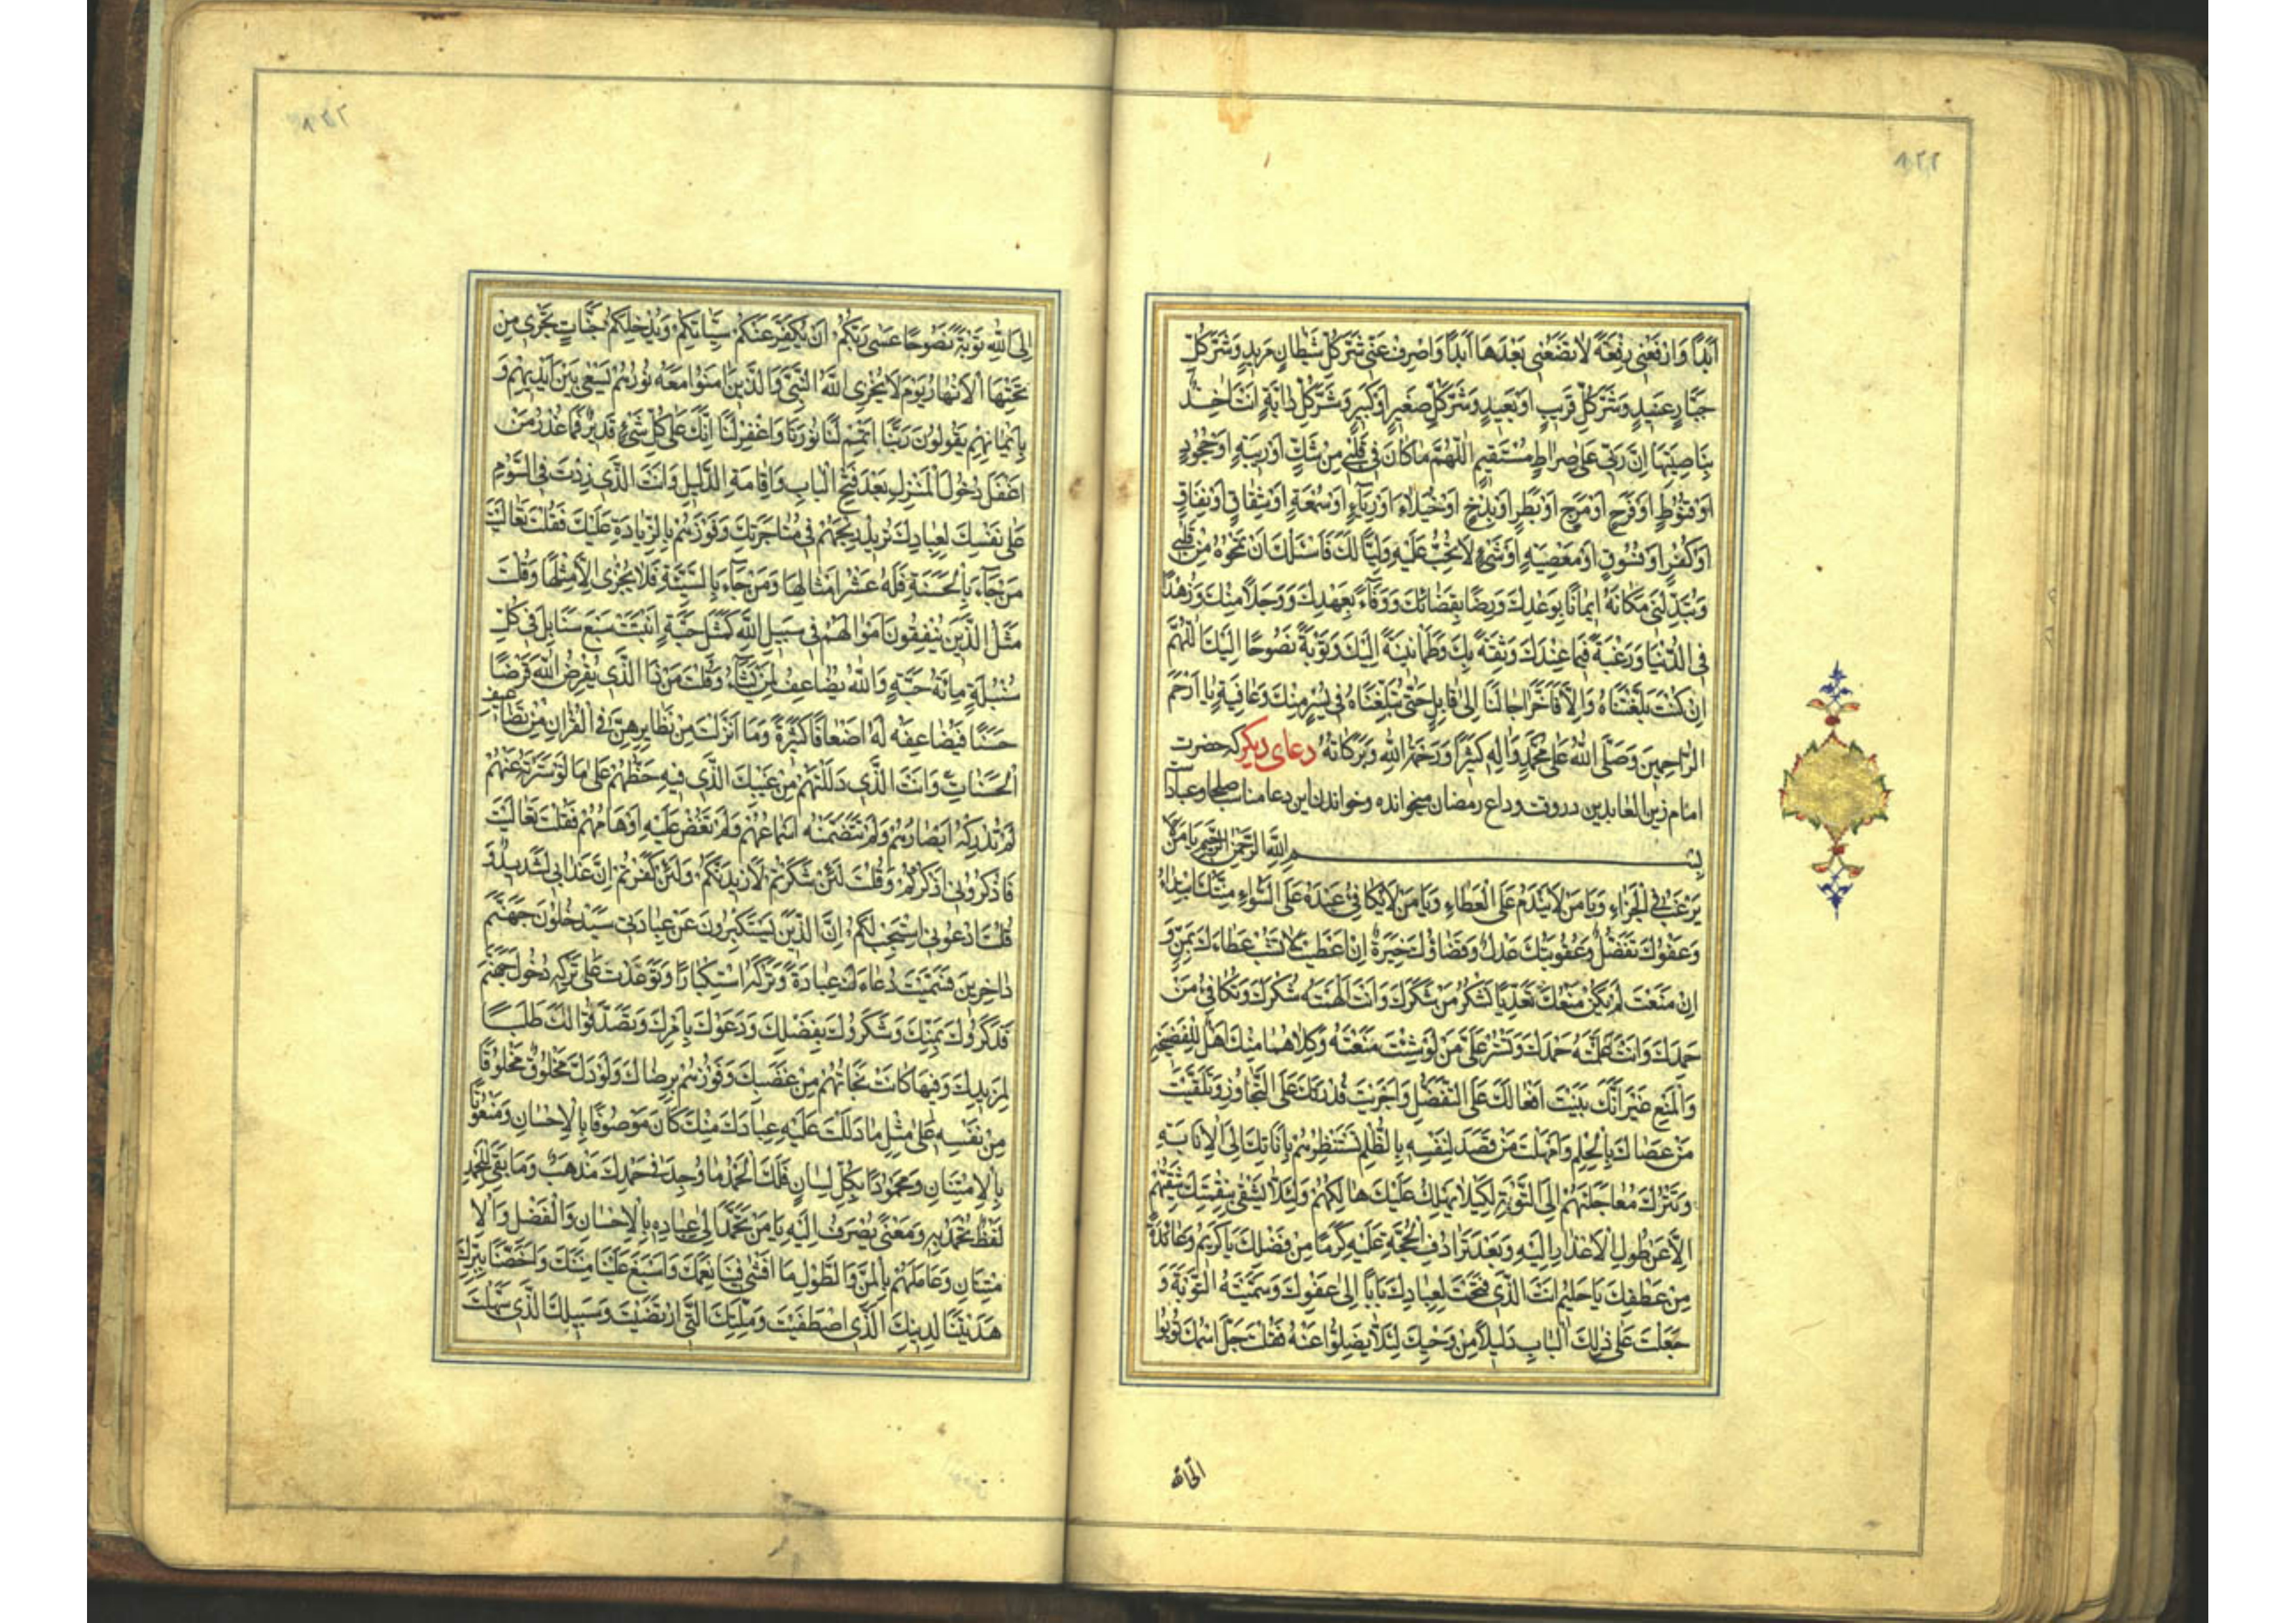 ٨٢٢
اَبَدًا وَارْفَعْنى رِفْعَةً لاتَضَعُنى بَعْدَها اَبَدًا وَاصْرِفْ عَنّى شَرَّ كُلِّ شَيْطانٍ مَريدٍ وَشَرَّ كُلِّ
جَبّارٍ عَنيدٍ وَشَرَّ كُلِّ قَريبٍ اَوْ بَعيدٍ وَشَرَّ كُلِّ صَغيرٍ اَوْ كَبيرٍ وَشَرَّ كُلِّ دابَّةٍ اَنْتَ اخِذٌ
بِناصِيَتِها اِنَّ رَبّى عَلى صِراطٍ مُسْتَقيمٍ اَللّهُمَّ ما كانَ فى قَلْبى مِنْ شَكٍّ اَوْ ريبَةٍ اَوْ جُحُودٍ
اَوْ قُنُوطٍ اَوْ فَرَحٍ اَوْ مَرَحٍ اَوْ بَطَرٍ اَوْ بَذَخٍ اَوْ خُيَلاءَ اَوْ رِياءٍ اَوْ سُمْعَةٍ اَوْ شِقاقٍ اَوْ نِفاقٍ
اَوْ كُفْرٍ اَوْ فُسُوقٍ اَوْ مَعْصِيَةٍ اَوْ شَىْءٍ لاتُحِبُّ عَلَيْهِ وَلِيًّا لَكَ فَاَسْئَلُكَ اَنْ تَمْحُوَهُ مِنْ قَلْبى
وَتُبَدِّلَنى مَكانَهُ ايمانًا بِوَعْدِكَ وَرِضًا بِقَضائِكَ وَوَفاءً بِعَهْدِكَ وَوَجَلاً مِنْكَ وَزُهْدًا
فِى الدُّنْيا وَرَغْبَةً فيما عِنْدَكَ وَثِقَةً بِكَ وَطُمَانينَةً اِلَيْكَ وَتَوْبَةً نَصُوحًا اِلَيْكَ اَللّهُمَّ
اِنْ كُنْتَ بَلَّغْتَناهُ وَاِلاّ فَاَخِّرْ اجالَنا اِلى قابِلٍ حَتّى تُبَلِّغَناهُ فى يُسْرٍ مِنْكَ وَعافِيَةٍ يا اَرْحَمَ
الرّاحِمينَ وَصَلَّى اللهُ عَلى مُحَمَّدٍ وَالِهِ كَثيرًا وَرَحْمَةُ اللهِ وَبَرَكاتُهُ دعاى ديكر كه حضرت
امام زين العابدين در وقت وداع رمضان ميخوانده وخواندن اين دعا مناسب صلحا وعباد است
بِسْمِ اللهِ الرَّحْمنِ الرَّحيمِ يا مَنْ لا
يَرْغَبُ فِى الْجَزاءِ وَيا مَنْ لايَنْدَمُ عَلَى الْعَطاءِ وَيا مَنْ لايُكافِئُ عَبْدَهُ عَلَى السَّواءِ مِنَّتُكَ ابْتِداءٌ
وَعَفْوُكَ تَفَضُّلٌ وَعُقُوبَتُكَ عَدْلٌ وَقَضاؤُكَ خِيَرَةٌ اِنْ اَعْطَيْتَ لَمْ تَشُبْ عَطاءَكَ بِمَنٍّ وَ
اِنْ مَنَعْتَ لَمْ يَكُنْ مَنْعُكَ تَعَدِّيًا تَشْكُرُ مَنْ شَكَرَكَ وَاَنْتَ اَلْهَمْتَهُ شُكْرَكَ وَتُكافِئُ مَنْ
حَمِدَكَ وَاَنْتَ عَلَّمْتَهُ حَمْدَكَ وَتَسْتُرُ عَلى مَنْ لَوْ شِئْتَ مَنَعْتَهُ وَكِلاهُما مِنْكَ اَهْلٌ لِلْفَضيحَةِ
وَالْمَنْعِ غَيْرَ اَنَّكَ بَنَيْتَ اَفْعالَكَ عَلَى التَّفَضُّلِ وَاَجْرَيْتَ قُدْرَتَكَ عَلَى التَّجاوُزِ وَتَلَقَّيْتَ
مَنْ عَصاكَ بِالْحِلْمِ وَاَمْهَلْتَ مَنْ قَصَدَ لِنَفْسِهِ بِالظُّلْمِ تَسْتَنْظِرُهُمْ بِاَناتِكَ اِلَى الْاِنابَةِ
وَتَتْرُكُ مُعاجَلَتَهُمْ اِلَى التَّوْبَةِ لِكَيْلا يَهْلِكَ عَلَيْكَ هالِكُهُمْ وَلِئَلاّ يَشْقى بِنِقْمَتِكَ شَقِيُّهُمْ
اِلاّ عَنْ طُولِ الْاِعْذارِ اِلَيْهِ وَبَعْدَ تَرادُفِ الْحُجَّةِ عَلَيْهِ كَرَمًا مِنْ فَضْلِكَ يا كَريمُ وَعائِدَةً
مِنْ عَطْفِكَ يا حَليمُ اَنْتَ الَّذى فَتَحْتَ لِعِبادِكَ بابًا اِلى عَفْوِكَ وَسَمَّيْتَهُ التَّوْبَةَ وَ
جَعَلْتَ عَلى ذلِكَ الْبابِ دَليلاً مِنْ وَحْيِكَ لِئَلاّ يَضِلُّوا عَنْهُ فَقُلْتَ جَلَّ اسْمُكَ تُوبُوا
اِلَى اللهِ تَوْبَةً نَصُوحًا عَسى رَبُّكُمْ اَنْ يُكَفِّرَ عَنْكُمْ سَيِّاتِكُمْ وَيُدْخِلَكُمْ جَنّاتٍ تَجْرى مِنْ
تَحْتِهَا الْاَنْهارُ يَوْمَ لايُخْزِى اللهُ النَّبِىَّ وَالَّذينَ امَنُوا مَعَهُ نُورُهُمْ يَسْعى بَيْنَ اَيْديهِمْ وَ
بِاَيْمانِهِمْ يَقُولُونَ رَبَّنا اَتْمِمْ لَنا نُورَنا وَاغْفِرْ لَنا اِنَّكَ عَلى كُلِّ شَىْءٍ قَديرٌ فَما عُذْرُ مَنْ
اَغْفَلَ دُخُولَ الْمَنْزِلِ بَعْدَ فَتْحِ الْبابِ وَاِقامَةِ الدَّليلِ وَاَنْتَ الَّذى زِدْتَ فِى السَّوْمِ
عَلى نَفْسِكَ لِعِبادِكَ تُريدُ رِبْحَهُمْ فى مُتاجَرَتِكَ وَفَوْزَهُمْ بِالزِّيادَةِ عَلَيْكَ فَقُلْتَ تَعالَيْتَ
مَنْ جاءَ بِالْحَسَنَةِ فَلَهُ عَشْرُ اَمْثالِها وَمَنْ جاءَ بِالسَّيِّئَةِ فَلايُجْزى اِلاّ مِثْلَها وَقُلْتَ
مَثَلُ الَّذينَ يُنْفِقُونَ اَمْوالَهُمْ فى سَبيلِ اللهِ كَمَثَلِ حَبَّةٍ اَنْبَتَتْ سَبْعَ سَنابِلَ فى كُلِّ
سُنْبُلَةٍ مِائَةُ حَبَّةٍ وَاللهُ يُضاعِفُ لِمَنْ يَشاءُ وَقُلْتَ مَنْ ذَا الَّذى يُقْرِضُ اللهَ قَرْضًا
حَسَنًا فَيُضاعِفَهُ لَهُ اَضْعافًا كَثيرَةً وَما اَنْزَلْتَ مِنْ نَظايِرِهِنَّ فِى الْقُرْانِ مِنْ تَضاعيفِ
الْحَسَناتِ وَاَنْتَ الَّذى دَلَلْتَهُمْ مِنْ غَيْبِكَ الَّذى فيهِ حَظُّهُمْ عَلى ما لَوْ سَتَرْتَهُ عَنْهُمْ
لَمْ تُدْرِكْهُ اَبْصارُهُمْ وَلَمْ تَتَضَمَّنْهُ اَسْماعُهُمْ وَلَمْ تَغُضْ عَلَيْهِ اَوْهامُهُمْ فَقُلْتَ تَعالَيْتَ
فَاذْكُرُونى اَذْكُرْكُمْ وَقُلْتَ لَئِنْ شَكَرْتُمْ لَاَزيدَنَّكُمْ وَلَئِنْ كَفَرْتُمْ اِنَّ عَذابى لَشَديدٌ وَ
قُلْتَ ادْعُونى اَسْتَجِبْ لَكُمْ اِنَّ الَّذينَ يَسْتَكْبِرُونَ عَنْ عِبادَتى سَيَدْخُلُونَ جَهَنَّمَ
داخِرينَ فَسَمَّيْتَ دُعاءَكَ عِبادَةً وَتَرْكَهُ اسْتِكْبارًا وَتَوَعَّدْتَ عَلى تَرْكِهِ دُخُولَ جَهَنَّمَ
فَذَكَرُوكَ بِمَنِّكَ وَشَكَرُوكَ بِفَضْلِكَ وَدَعَوْكَ بِاَمْرِكَ وَتَصَدَّقُوا لَكَ طَلَبًا
لِمَزيدِكَ وَفيها كانَتْ نَجاتُهُمْ مِنْ غَضَبِكَ وَفَوْزُهُمْ بِرِضاكَ وَلَوْ دَلَّ مَخْلُوقٌ مَخْلُوقًا
مِنْ نَفْسِهِ عَلى مِثْلِ ما دَلَلْتَ عَلَيْهِ عِبادَكَ مِنْكَ كانَ مَوْصُوفًا بِالْاِحْسانِ وَمَنْعُوتًا
بِالْاِمْتِنانِ وَمَحْمُودًا بِكُلِّ لِسانٍ فَلَكَ الْحَمْدُ ما وُجِدَ فى حَمْدِكَ مَذْهَبٌ وَما بَقِىَ لِلْحَمْدِ
لَفْظٌ تُحْمَدُ بِهِ وَمَعْنًى يُصْرَفُ اِلَيْهِ يا مَنْ تَحَمَّدَ اِلى عِبادِهِ بِالْاِحْسانِ وَالْفَضْلِ وَالْاِ
مْتِنانِ وَعامَلَهُمْ بِالْمَنِّ وَالطَّوْلِ ما اَفْشى فينا نِعَمَكَ وَاَسْبَغَ عَلَيْنا مِنَّتَكَ وَاَخَصَّنا بِبِرِّكَ
هَدَيْتَنا لِدينِكَ الَّذِى اصْطَفَيْتَ وَمِلَّتِكَ الَّتِى ارْتَضَيْتَ وَسَبيلِكَ الَّذى سَهَّلْتَ